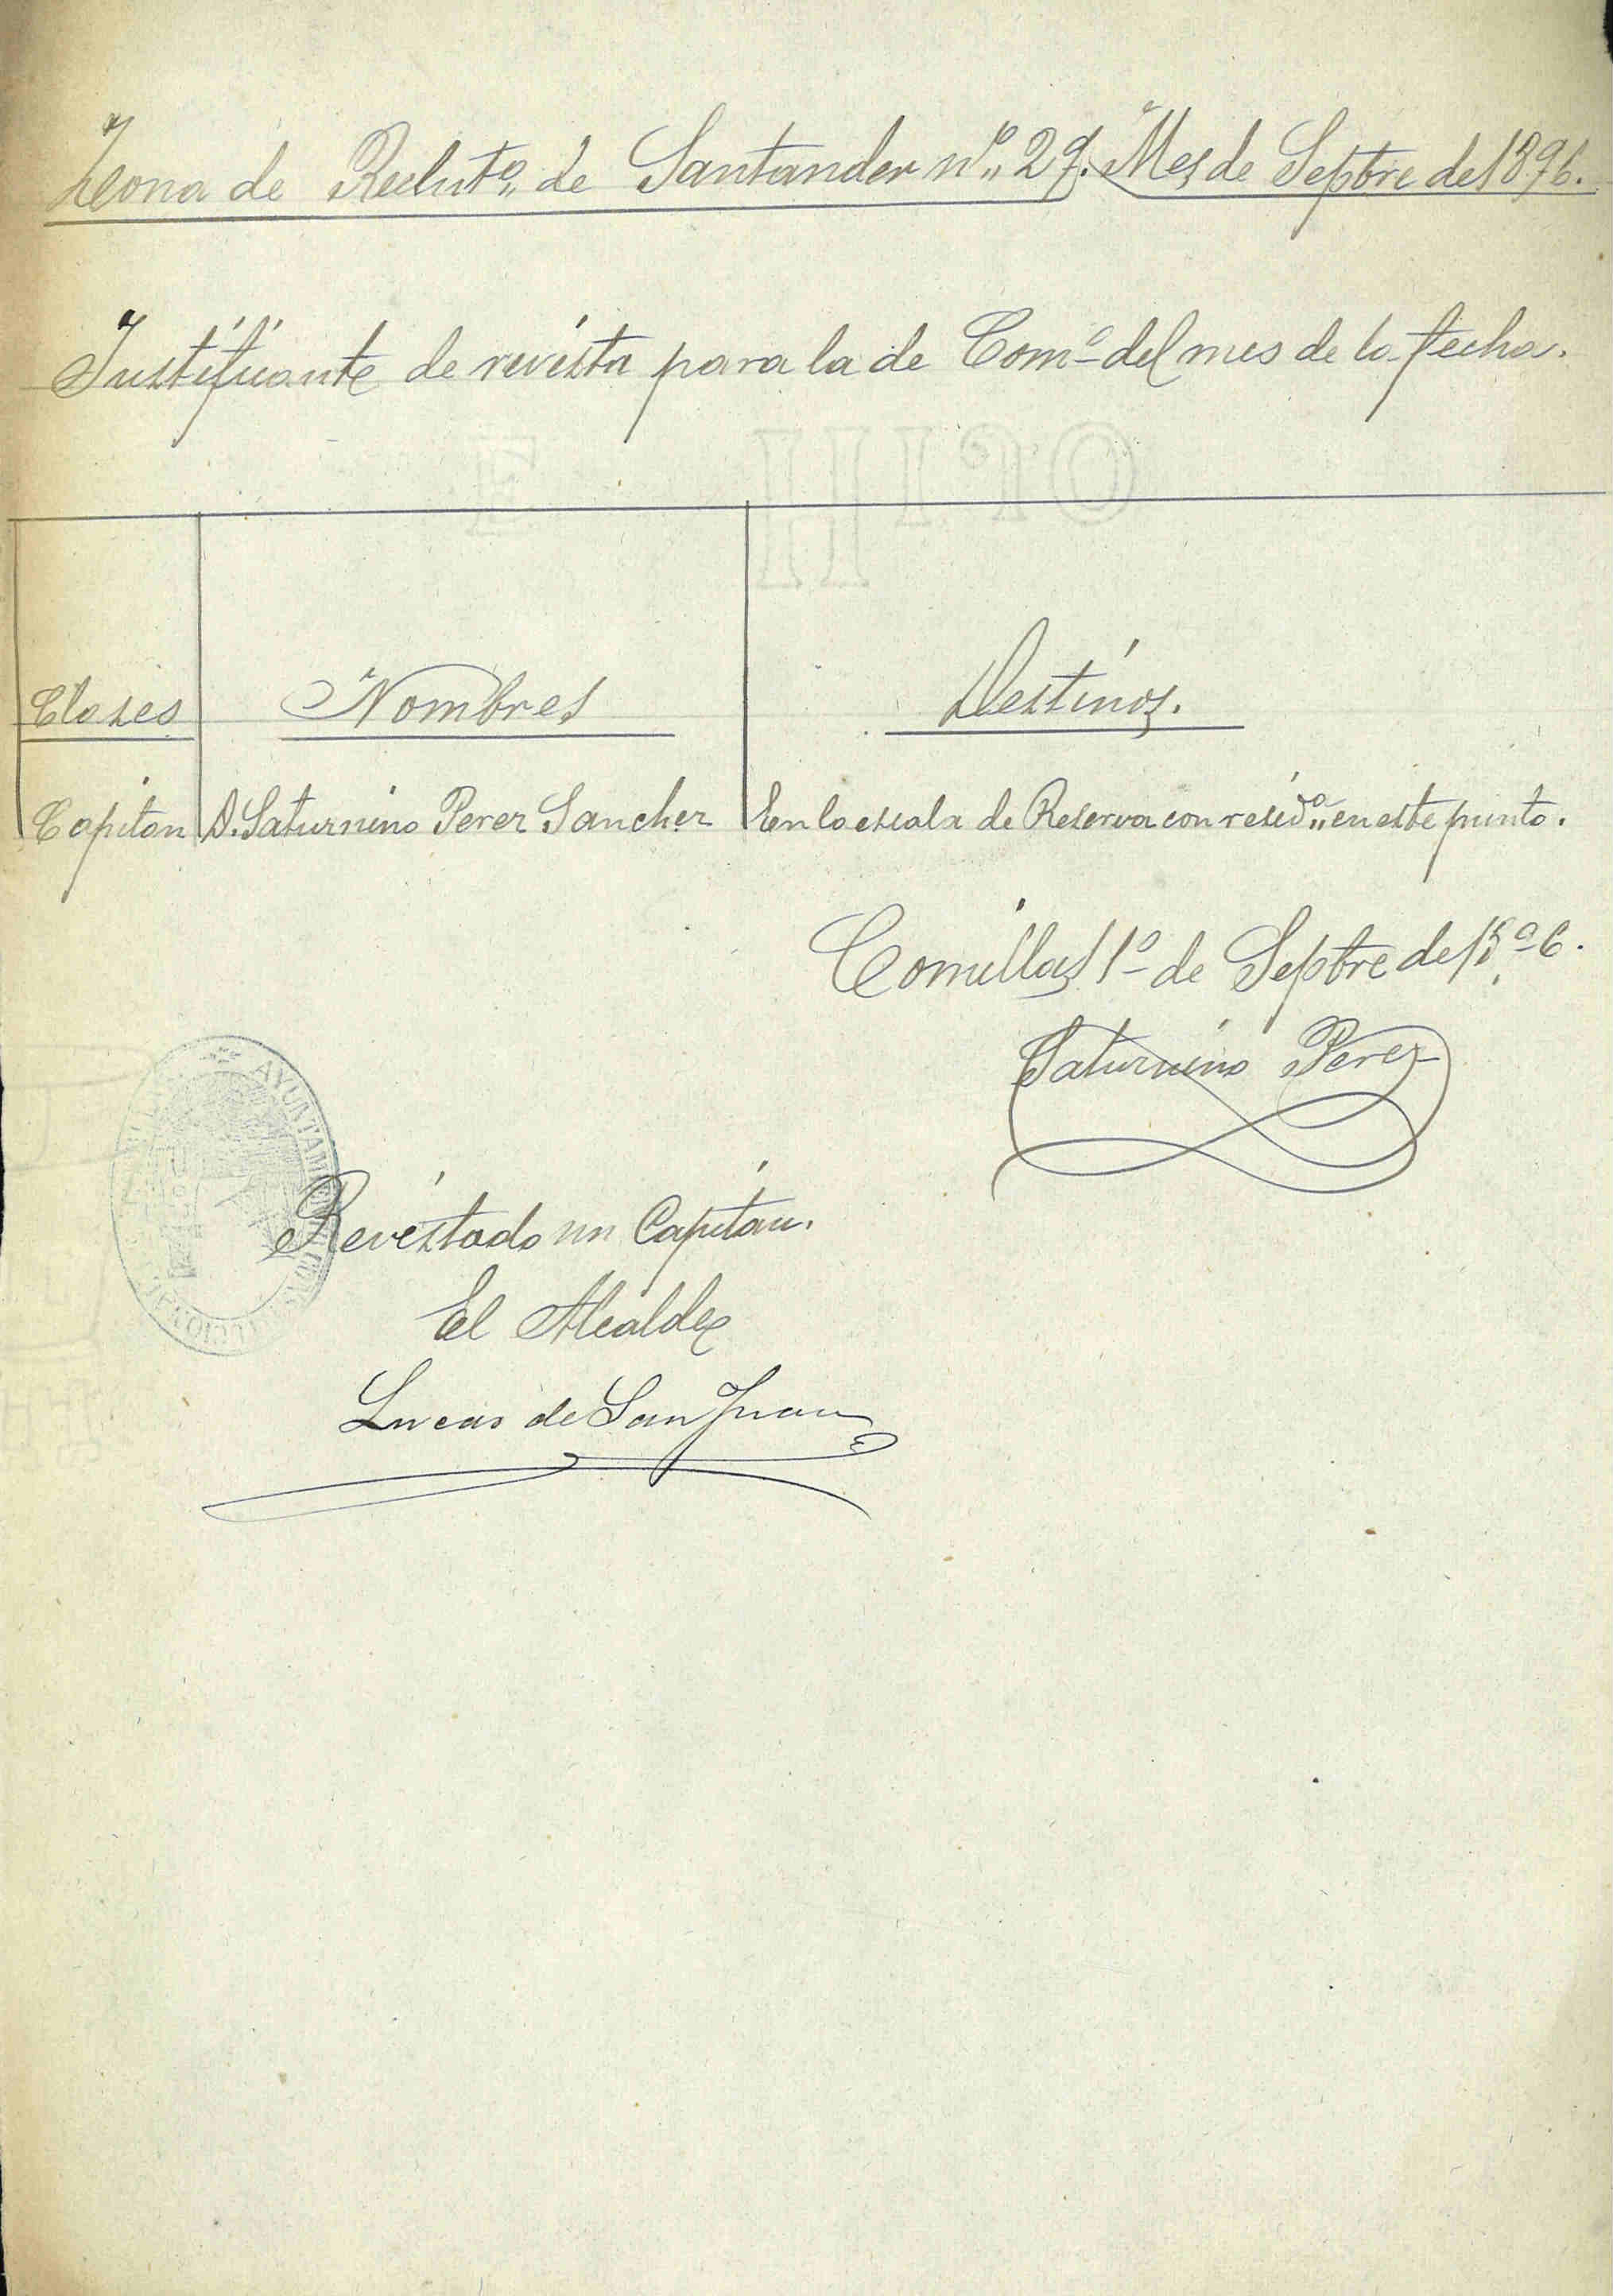 Zona de Reclut.º de Santander n.º 29. Mes de Septbre de 1896.
Justificante de revista para la de Com.º del mes de la fecha.
Clases Nombres Destinos.
Capitan D. Saturnino Perez Sanchez En la escala de Reserva con resid.ª en este punto.
Comillas 1º de Septbre de 1896.
Saturnino Perez
AYUNTAMIENTO CONSTITUCIONAL
Revistado un Capitan.
El Alcalde
Lucas de San Juan